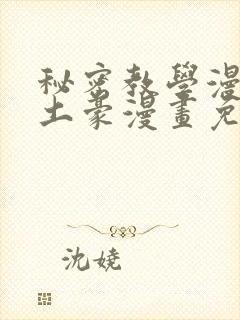 秘密教學漫
土豪漫畫免
沈嬈